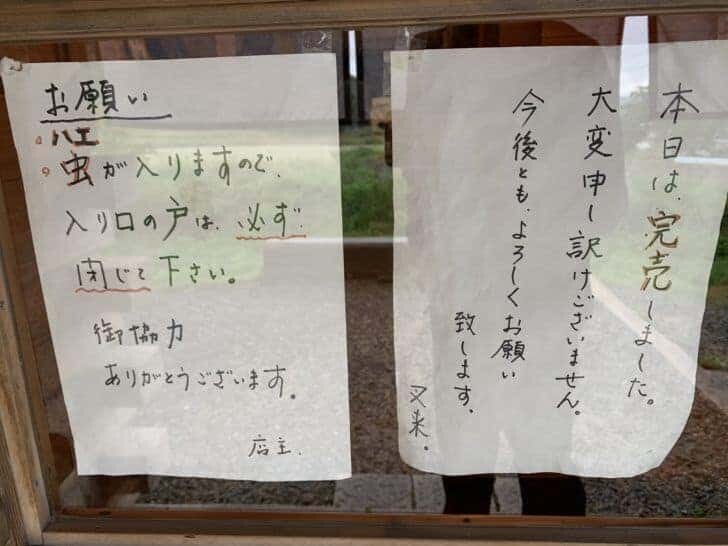 お願い
ハエ
虫が入りますので、
入り口の戸は、必ず
閉じて下さい。
御協力
ありがとうございます。
店主.
本日は、完売しました。
大変申し訳けございません。
今後とも、よろしくお願い
致します、
又来。